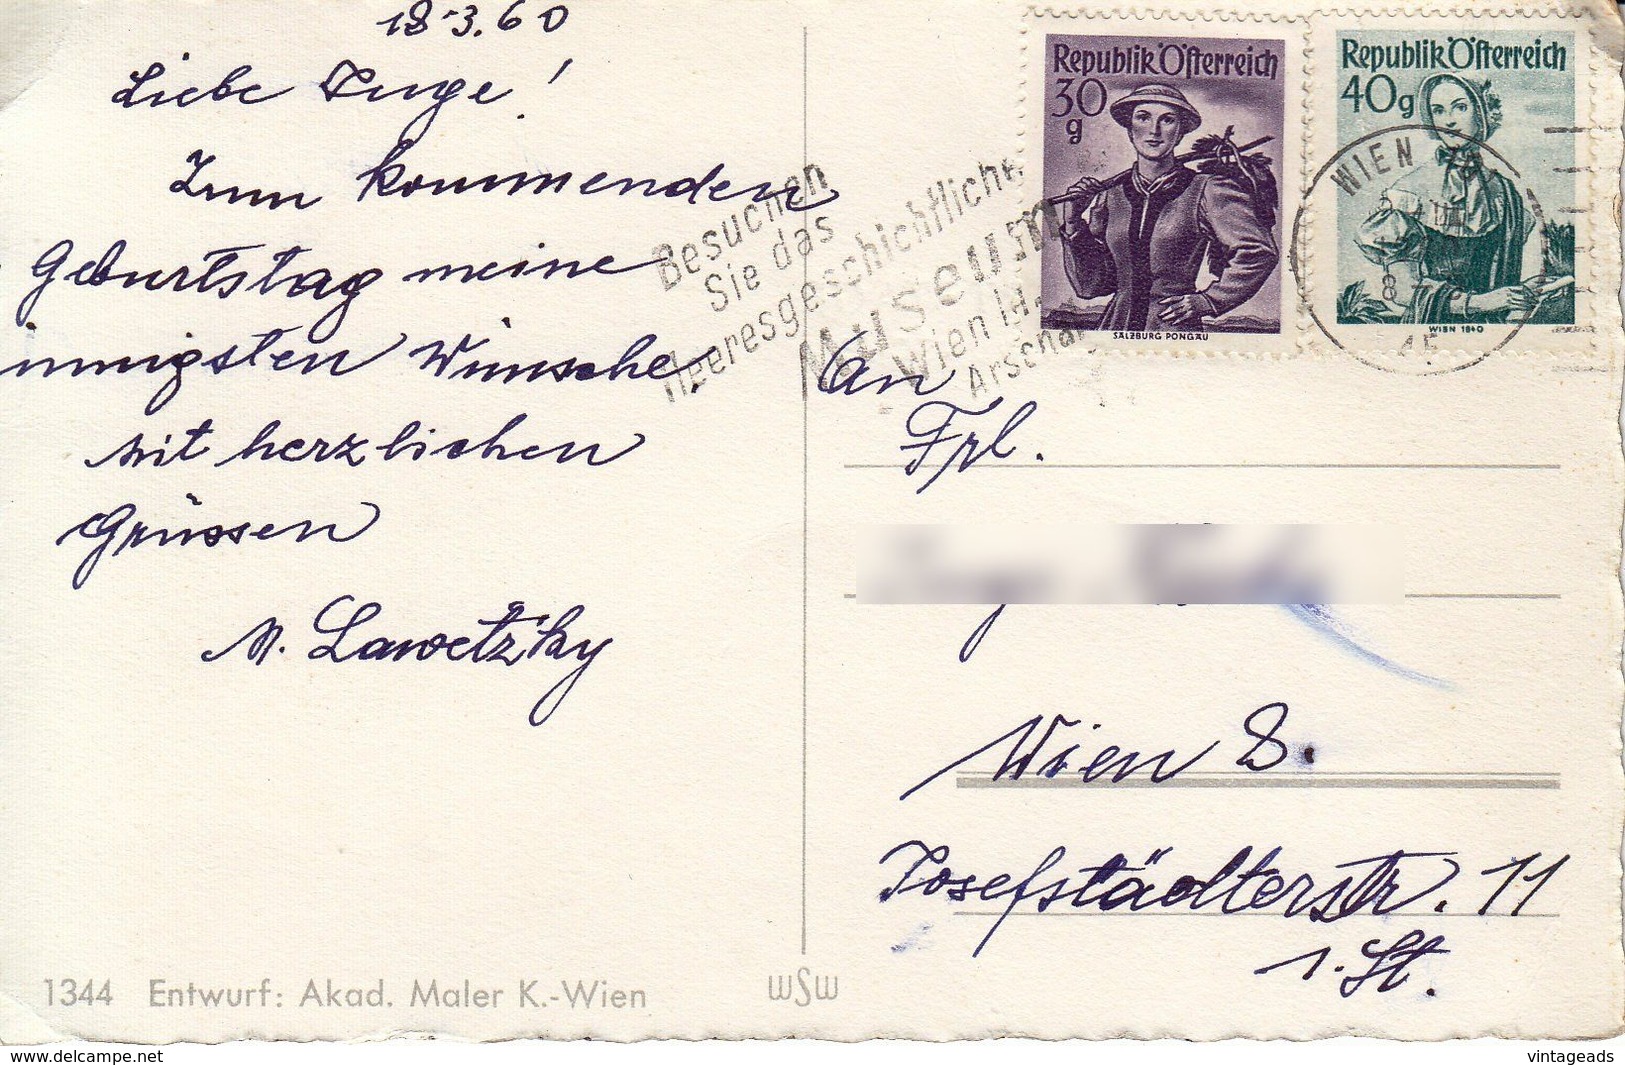 18-3.60
Liebe Inge!
Zum kommenden
Geburtstag meine
innigsten Wünsche,
mit herzlichen
Grüssen
M. Lawetzky
1344 Entwurf: Akad. Maler K.-Wien
WSW
Besuchen
Sie das
Heeresgeschichtliche
Museum
Wien
Republik Österreich
30
g
SALZBURG PONGAU
Republik Österreich
40g
WIEN 1840
WIEN
An
Frl.
Wien 8.
Josefstädterstr. 11
1. St.
www.delcampe.net
vintageads